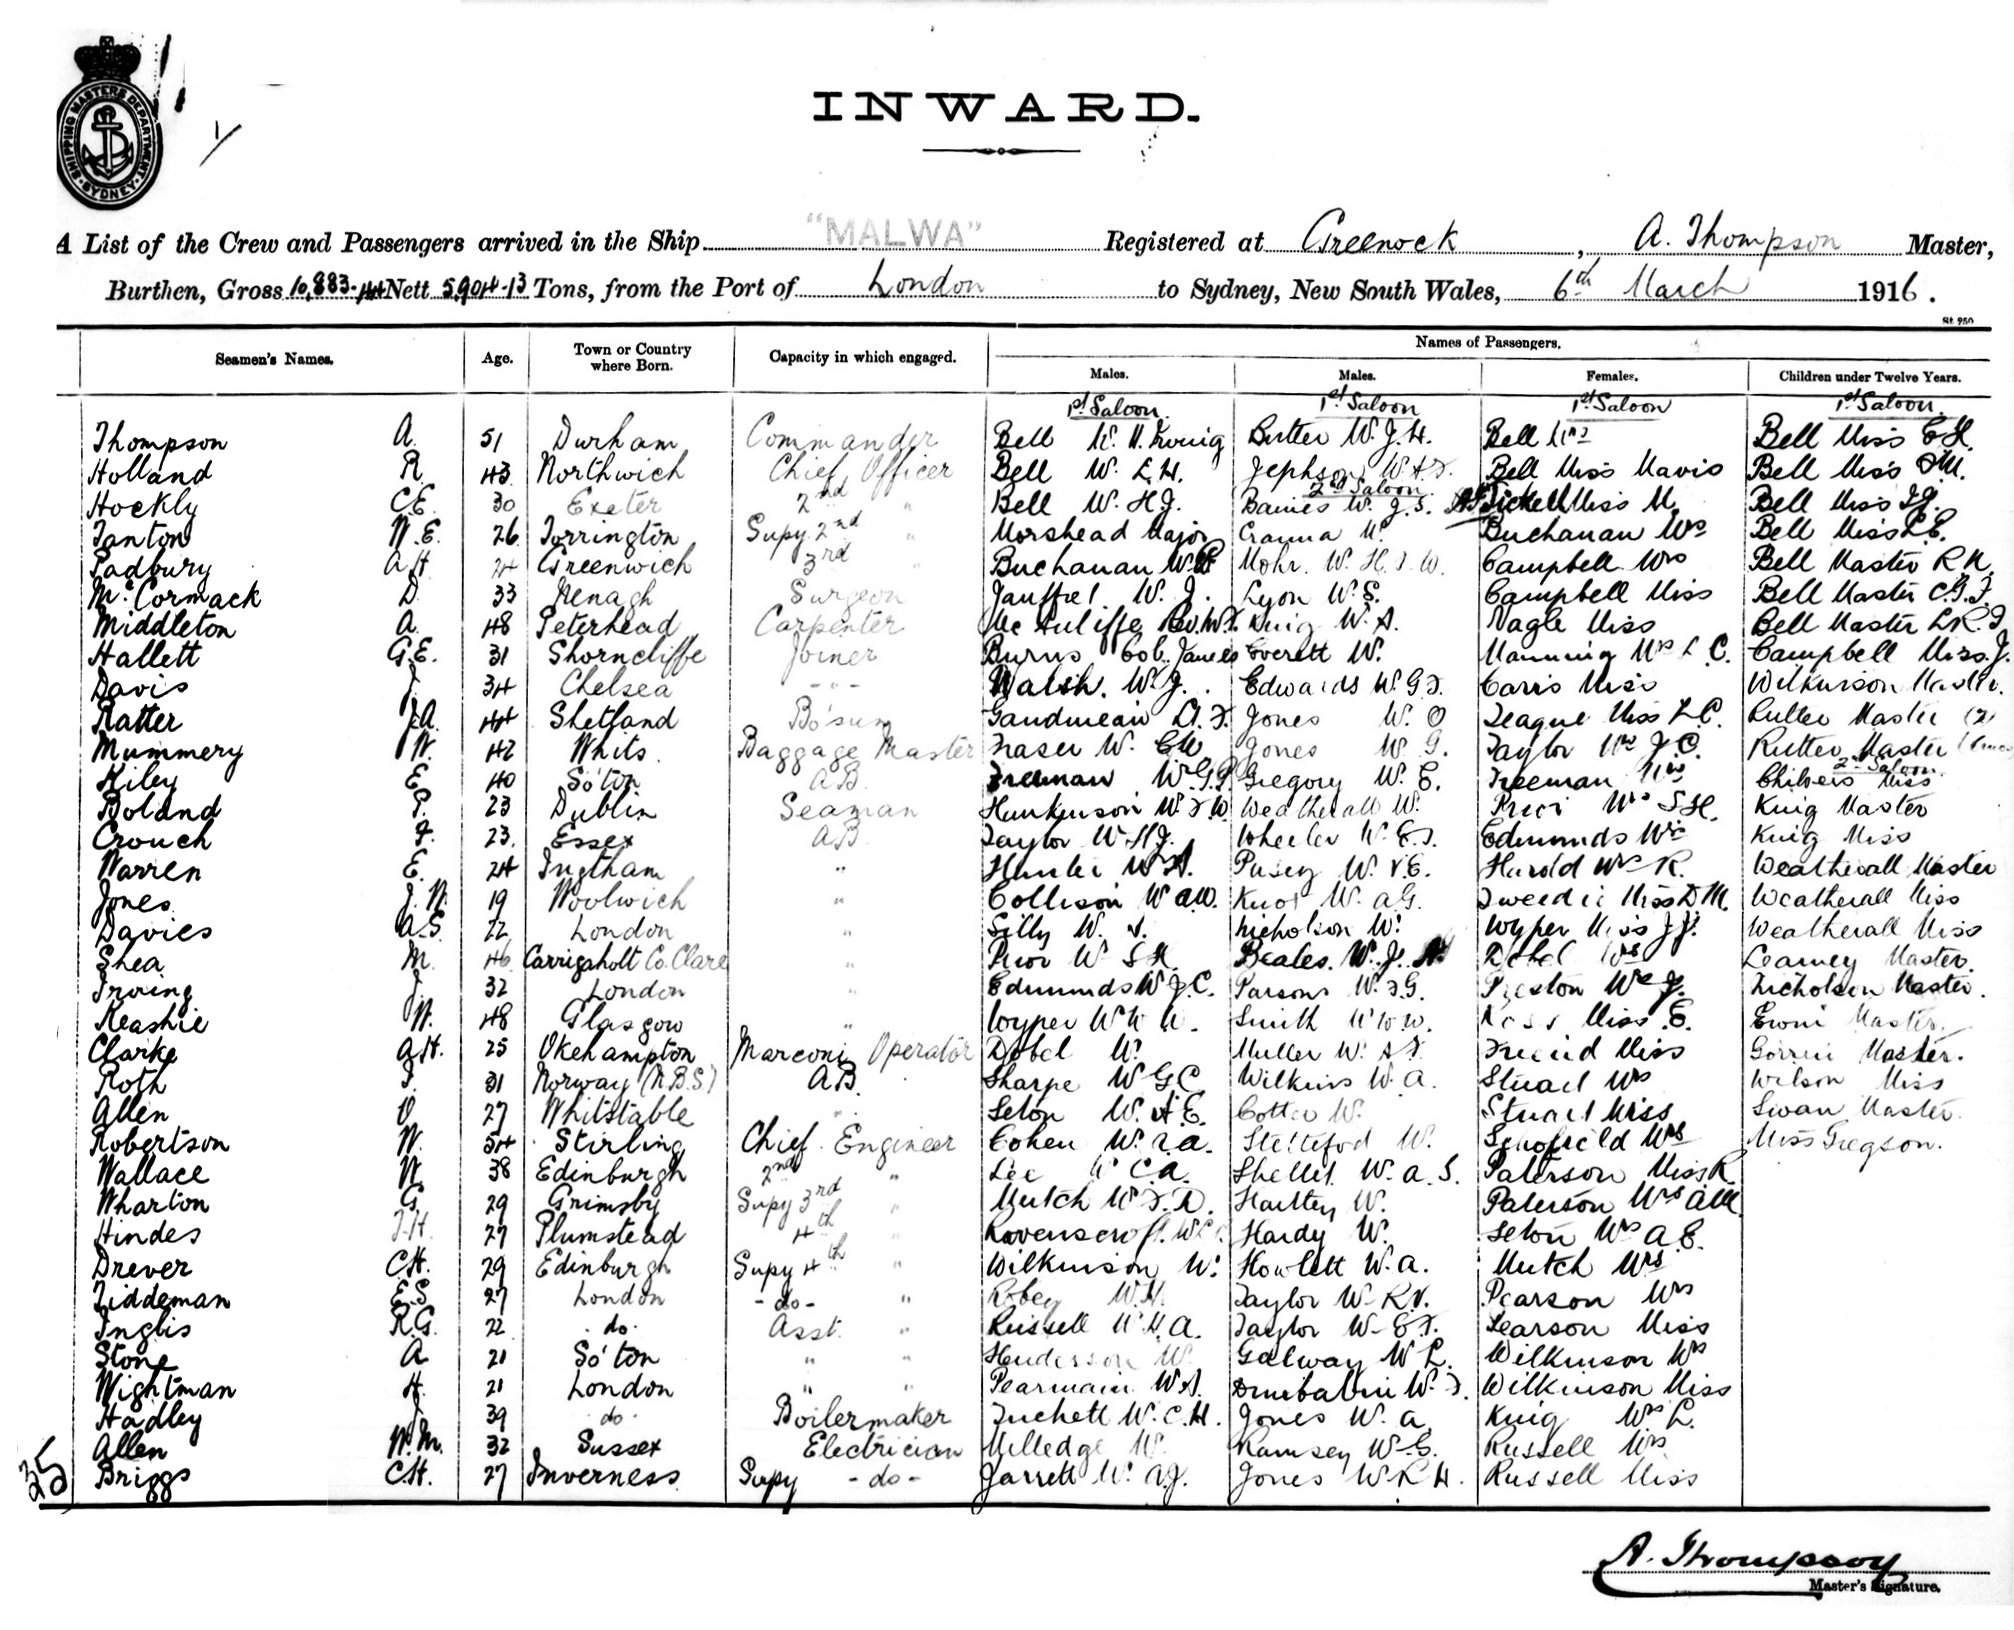 SHIPPING MASTERS DEPARTMENT
SYDNEY
INWARD.
A List of the Crew and Passengers arrived in the Ship "MALWA" Registered at Greenock, A. Thompson Master,
Burthen, Gross 10,883.44 Nett 5904.13 Tons, from the Port of London to Sydney, New South Wales, 6th March 1916.
Seamen's Names. Age. Town or Country where Born. Capacity in which engaged. Names of Passengers.
Males. Males. Females. Children under Twelve Years.
1st Saloon. 1st Saloon 1st Saloon 1st Saloon.
Thompson A. 51 Durham Commander Bell Rutter W. J. H. Bell Mrs Bell Miss
Holland R. 43 Northwich Chief Officer Bell W. L. H. Jephson Bell Miss Mavis Bell Miss
2nd Saloon
Hockly C.E. 30 Exeter 2nd " Bell W. H J. Baines W. J. S. Miss M. Bell Miss
Tanton W. E. 26 Torrington Supy. 2nd " Morshead Major Buchanan Mrs Bell Miss
Padbury A H 24 Greenwich 3rd " Buchanan Mohr. Campbell Mrs Bell Master R N.
McCormack D. 33 Nenagh Surgeon W. J. Lyon W. S. Campbell Miss Bell Master
Middleton A. 48 Peterhead Carpenter McAuliffe King W. A. Nagle Miss Bell Master
Hallett G.E. 31 Shorncliffe Joiner Burns Col. James Everett W. Manning Mrs L C. Campbell Miss. J.
Davis J. 34 Chelsea - " - Walsh. W. J. Edwards Miss Wilkinson Master.
Ratter J.A. 44 Shetland Bo'sun Jones W. O Teague Miss L. C. Rutter Master (2)
Mummery W. 42 Whits. Baggage Master Fraser W. Jones W. G. Taylor Mrs J. C. Rutter Master
2nd Saloon
Kiley E. 40 So'ton A.B. Freeman W G. P. Gregory W. E. Freeman Mrs Chilvers Miss
Boland P. 23 Dublin Seaman Hankinson Weatherall W. Mrs S. H. King Master
Crouch F. 23. Essex A.B. Taylor W H J. Wheeler Edmunds Mrs King Miss
Warren E. 24 Ingtham " Hunter W A. Pusey W. V. E. Harold Mrs R. Weatherall Master
Jones J. W. 19 Woolwich " Collison W A W. Knot W. A G. Tweedie Miss D M. Weatherall Miss
Davies A.S. 22 London " Silly W. Nicholson W. Wyper Miss J J. Weatherall Miss
Shea M. 46 Carrigaholt Co. Clare " Prior W S H. Beales. W. J. Dobel Mrs Leamey Master.
Irving J. 32 London " Edmunds W J. C. Parsons Preston Mrs J. Nicholson Master.
Keashie W. 48 Glasgow " Wyper W W W. Smith Ross Miss E. Master.
Clarke A.H. 25 Okehampton Marconi Operator Dobel W. Muller Friend Miss Master.
Roth 31 Norway (N.B.S) A.B. Sharpe W G C. Wilkins W. A. Stuart Mrs Wilson Miss
Allen 27 Whitstable " Seton W. A. E. Cotter W. Stuart Miss Swan Master.
Robertson W. 54 Stirling Chief Engineer Cohen Schofield Mrs Miss Gregson.
Wallace W. 38 Edinburgh 2nd " Lee W C. A. W. A. S. Paterson Miss R
Wharton G. 29 Grimsby Supy 3rd " Mutch Hartley W. Paterson Mrs
Hindes J. H. 27 Plumstead 4th " Ravenscroft. Hardy W. Seton Mrs A. E.
Drever C.H. 29 Edinburgh Supy 4th " Wilkinson W. Howlett W. A. Mutch Mrs
Tiddeman E.S. 27 London - do - " Robey W. H. Taylor W. R. V. Pearson Mrs
Inglis R.G. 22 do. Asst. " Russell W. H. A. Taylor Pearson Miss
Stone A 21 So'ton " " Henderson W. Galway W L. Wilkinson Mrs
Wightman H. 21 London " " Pearmain W A. Wilkinson Miss
Hadley J. 39 do. Boilermaker Tuchett W. C. H. Jones W. A King Mrs L.
Allen W.M. 32 Sussex Electrician Milledge W. Ramsey W. G. Russell Mrs
35 Briggs C.H. 27 Inverness. Supy - do - Jarrett W. A. J. Jones W R H. Russell Miss
A. Thompson
Master's Signature.